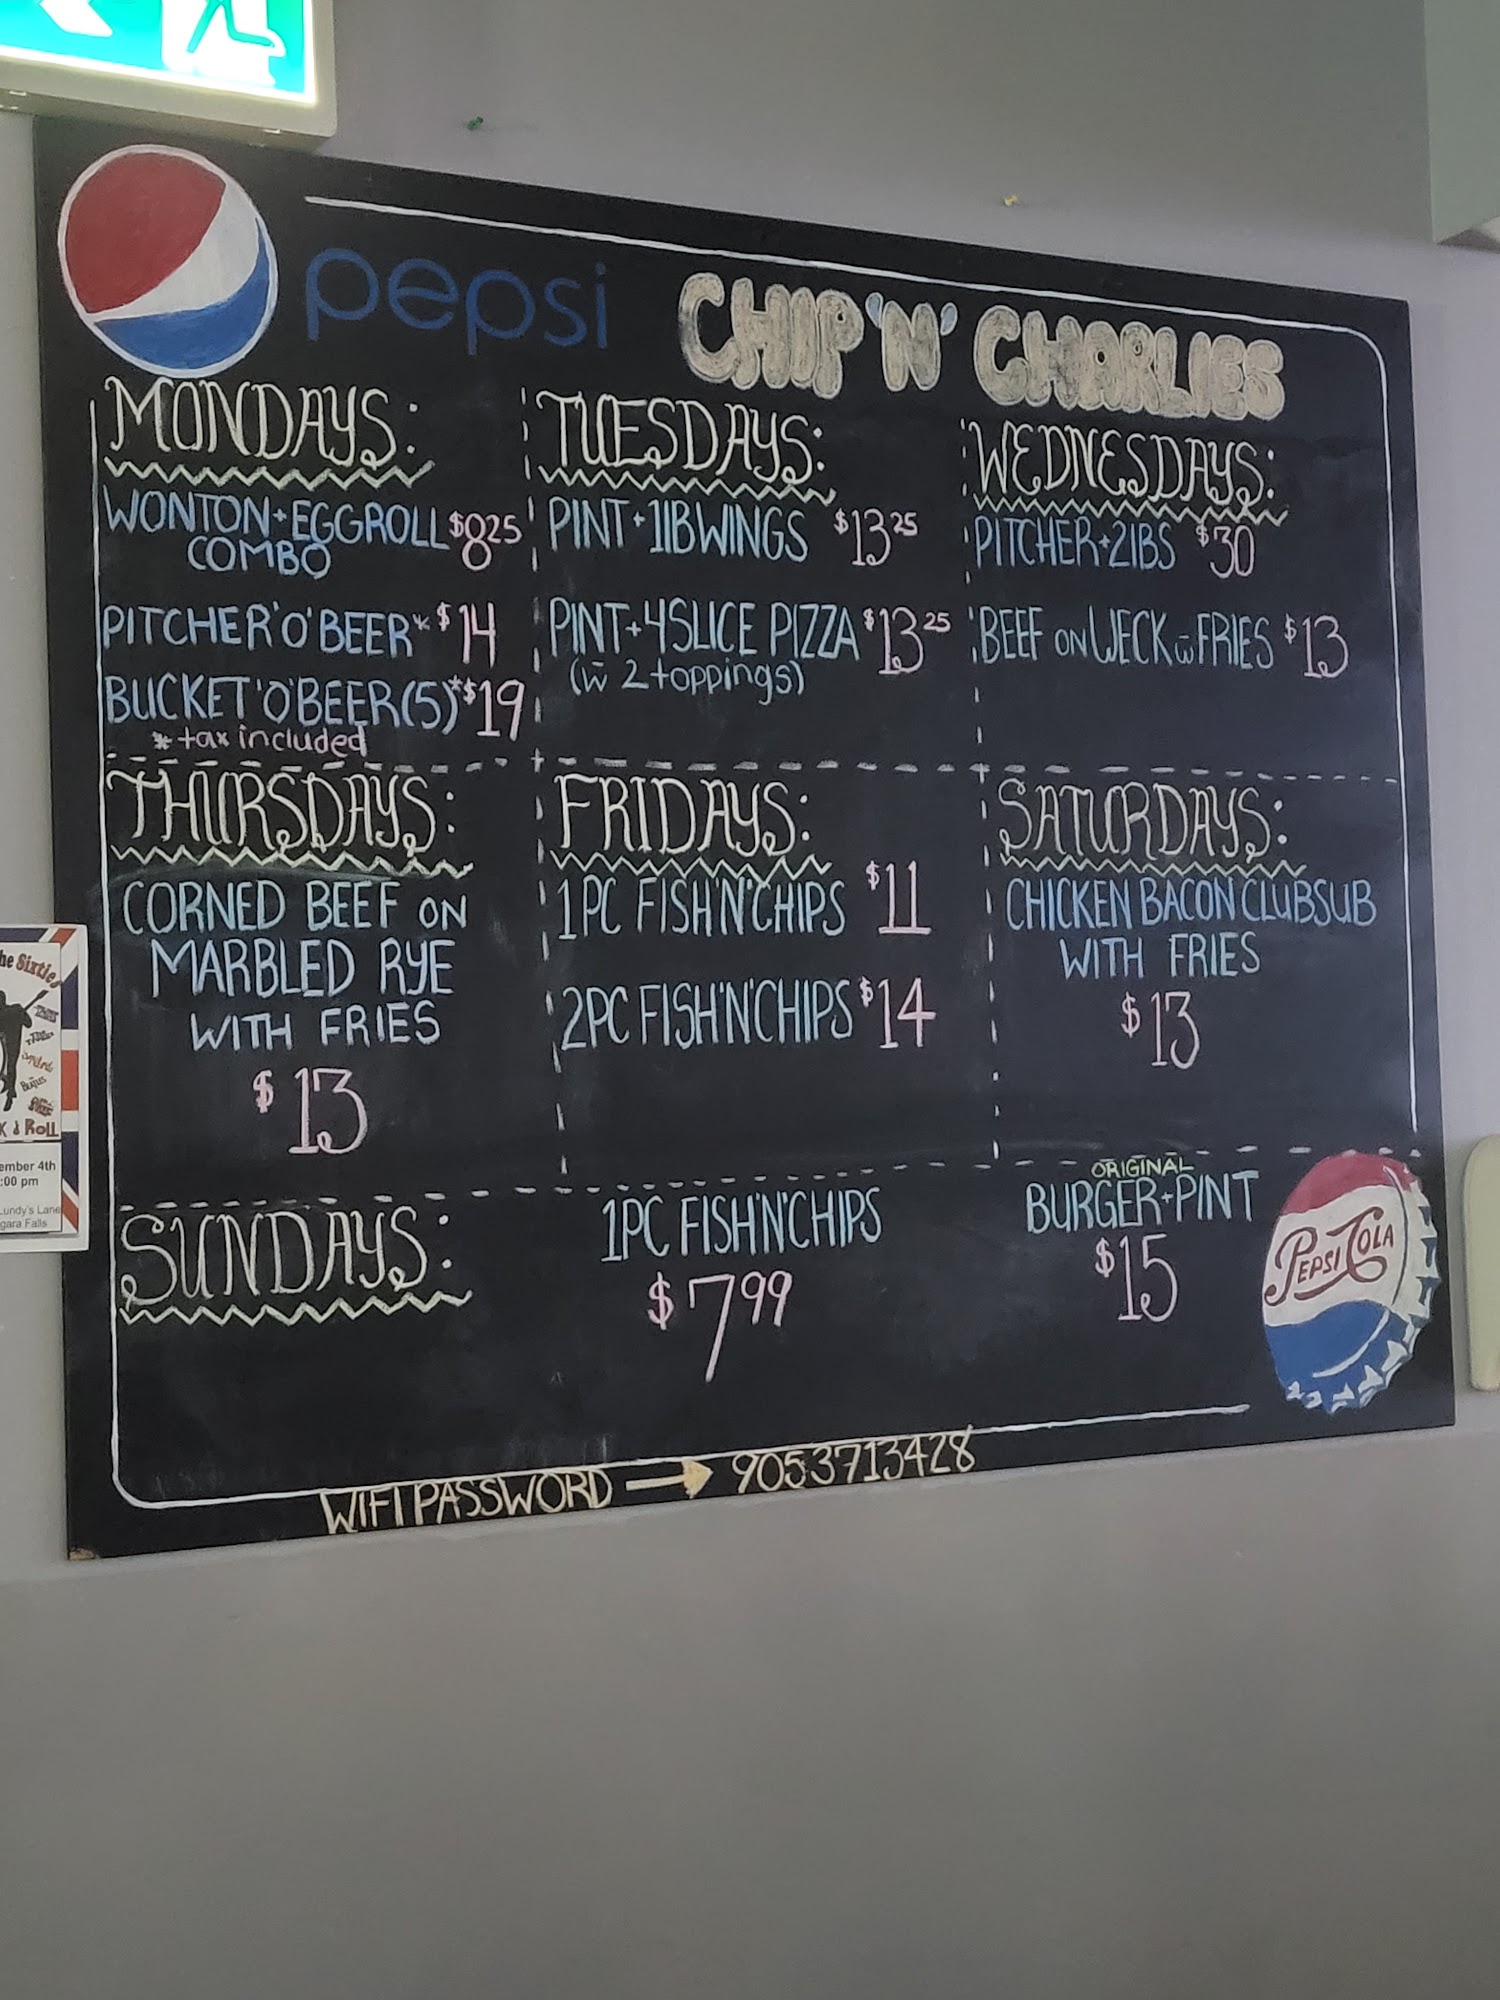 pepsi
CHIP 'N' CHARLIES
MONDAYS:
WONTON+EGGROLL $8.25
COMBO
PITCHER 'O' BEER* $14
BUCKET 'O' BEER (5)* $19
* tax included
TUESDAYS:
PINT + 1lB WINGS $13.25
PINT + 4 SLICE PIZZA $13.25
(w̄ 2 toppings)
WEDNESDAYS:
PITCHER + 2lBS $30
BEEF ON WECK w̄ FRIES $13
THURSDAYS:
CORNED BEEF ON
MARBLED RYE
WITH FRIES
$13
FRIDAYS:
1PC FISH'N'CHIPS $11
2PC FISH'N'CHIPS $14
SATURDAYS:
CHICKEN BACON CLUBSUB
WITH FRIES
$13
SUNDAYS:
1PC FISH'N'CHIPS
$7.99
ORIGINAL
BURGER + PINT
$15
PEPSI COLA
WIFI PASSWORD → 9053713428
he Sixties
Beatles
K & Roll
ember 4th
:00 pm
Lundy's Lane
gara Falls